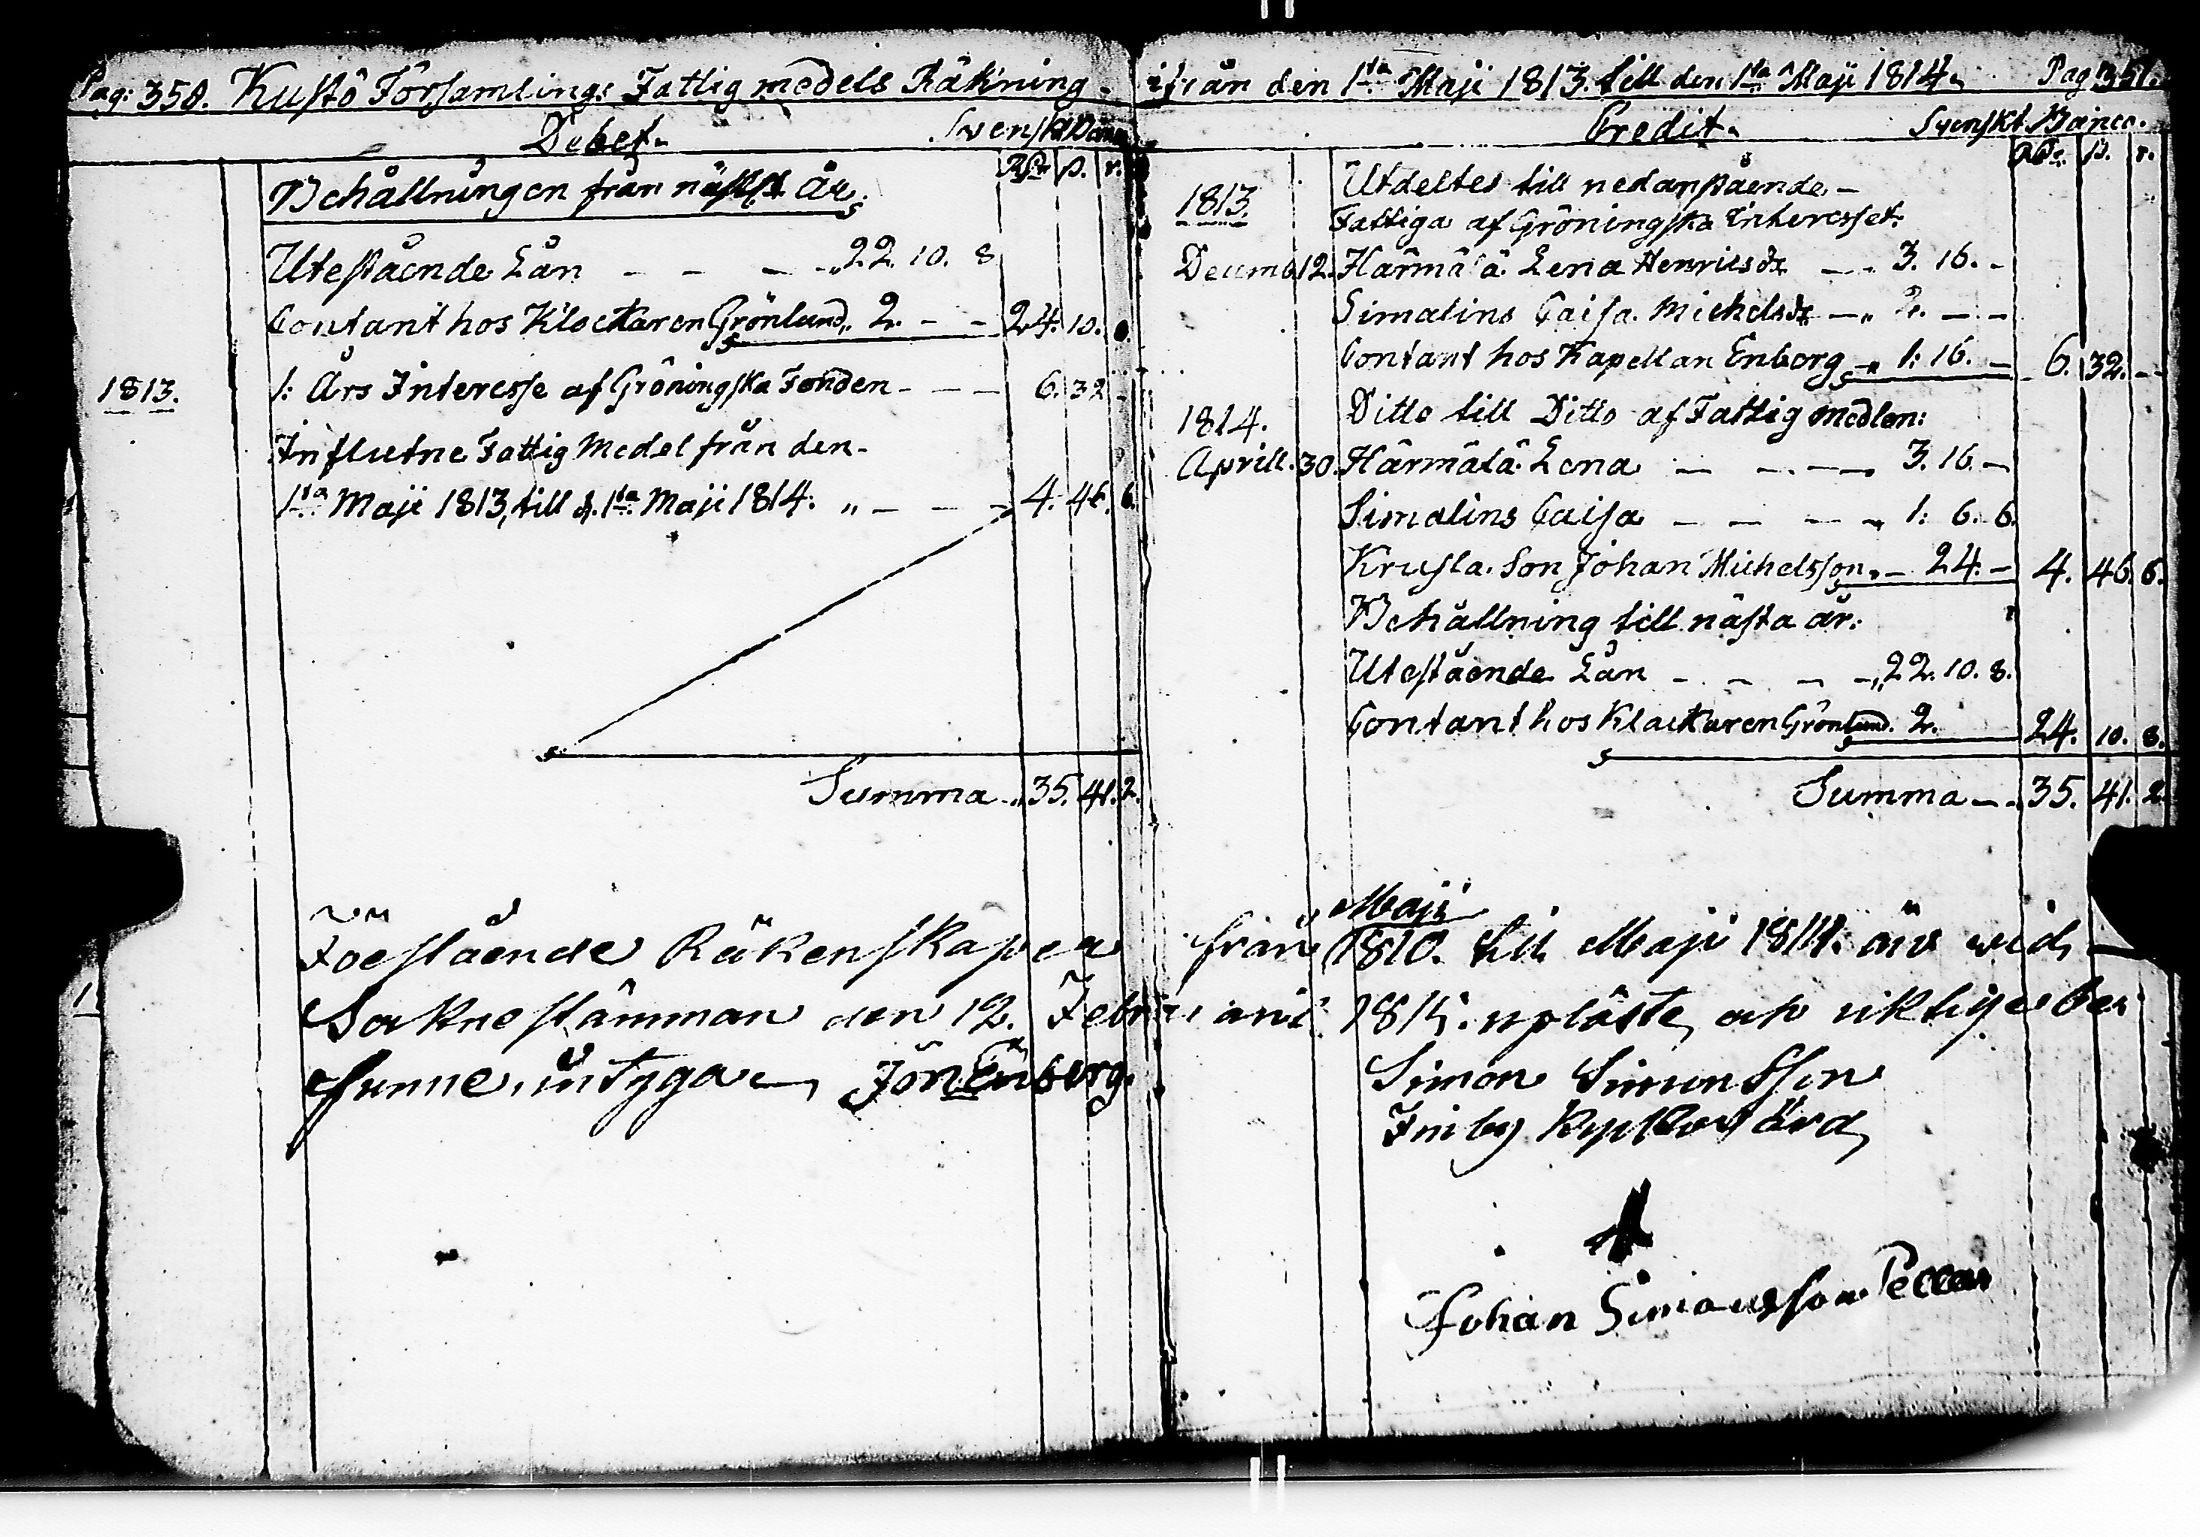 Pag: 358. Kustö Församlings Fattig medels Räkning
Debet. Svenskt Banco
RDr ß. r.
Behållningen från nästl. År
Utestående Lån - - - 22. 10. 8
Contant hos Klockaren Grönlund 2. - - 24. 10. 8.
1813. 1: Års Interesse af Gröningska Fonden - - - 6. 32 -
Influtne Fattig Medel från den
1sta Maji 1813, till d. 1sta Maji 1814. " - - - 4. 46. 6.
Summa 35. 41. 2.
ifrån den 1sta Maji 1813. till den 1sta Maji 1814. Pag:
Credit. Svenskt Banco.
RDr. ß. r.
1813. Utdeltes till nedanstående
Fattiga af Gröningska Interesset:
Decemb. 12. Härmälä Lena Henricsdr - - 3. 16. -
Simalins Caisa Michelsdr - " 2. - -
Contant hos Kapellan Enberg - 1: 16. - 6. 32. -
1814. Ditto till Ditto af Fattig medlen:
Aprill. 30. Härmälä Lena - - - 3. 16. -
Simalins Caisa - - - - 1: 6. 6.
Krusla Son Johan Michelsson - 24. - 4. 46. 6.
Behållning till nästa år:
Utestående Lån - - - - 22. 10. 8.
Contant hos Klockaren Grönlund. 2. 24. 10. 8.
Summa - - 35. 41. 2.
Förestående Räkenskaper från Maji 1810. till Maji 1814. äro wid
Sokne stämman den 12. Februarii 1815. uplöste och riktige be
funne, intygar Jon: Enberg.
Simon Simonsson
Finby
Johan Simonsson Peccas